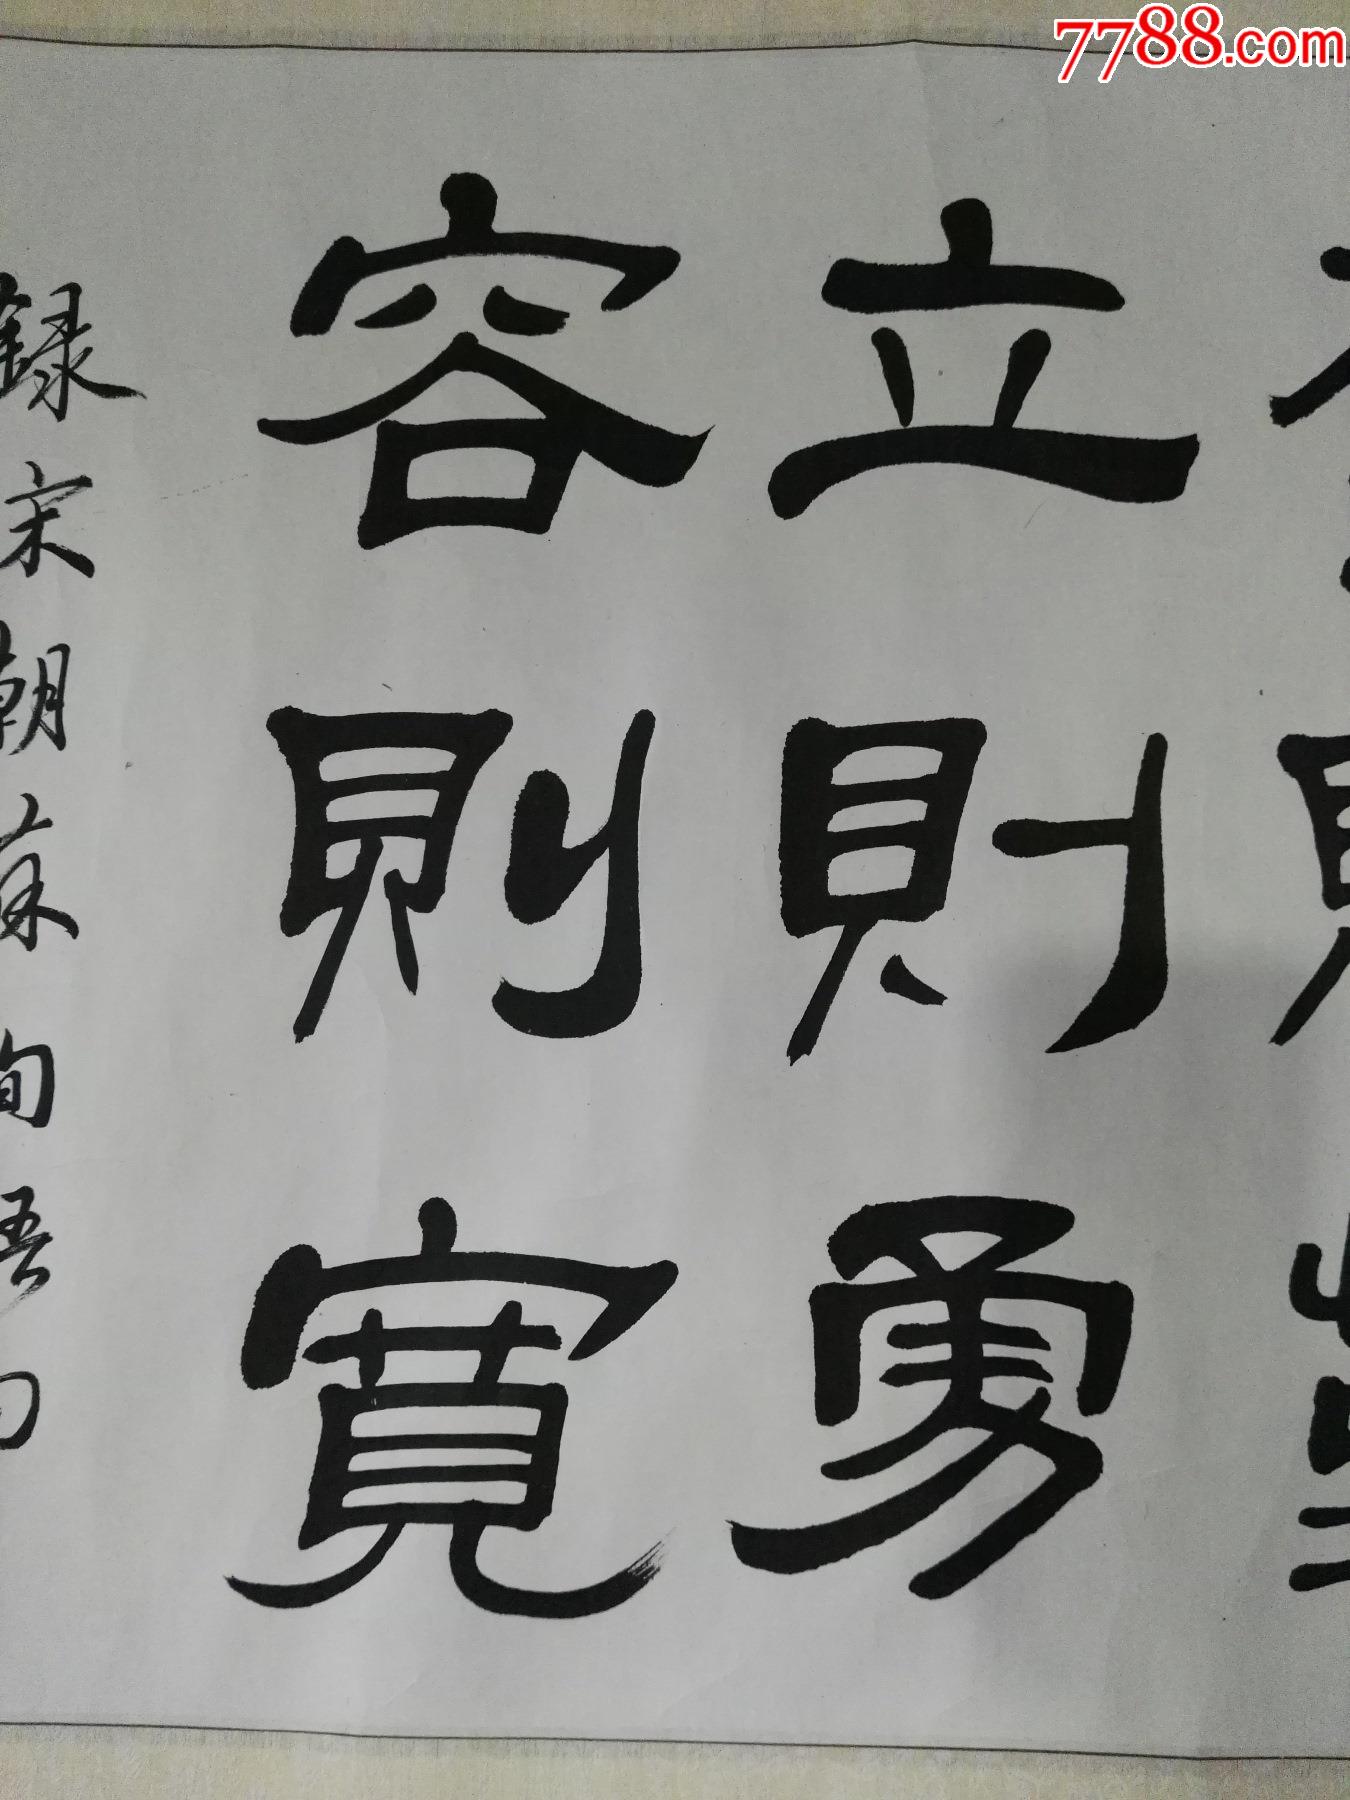 7788.com
立則勇
容則寬
録宋朝蘇洵語句